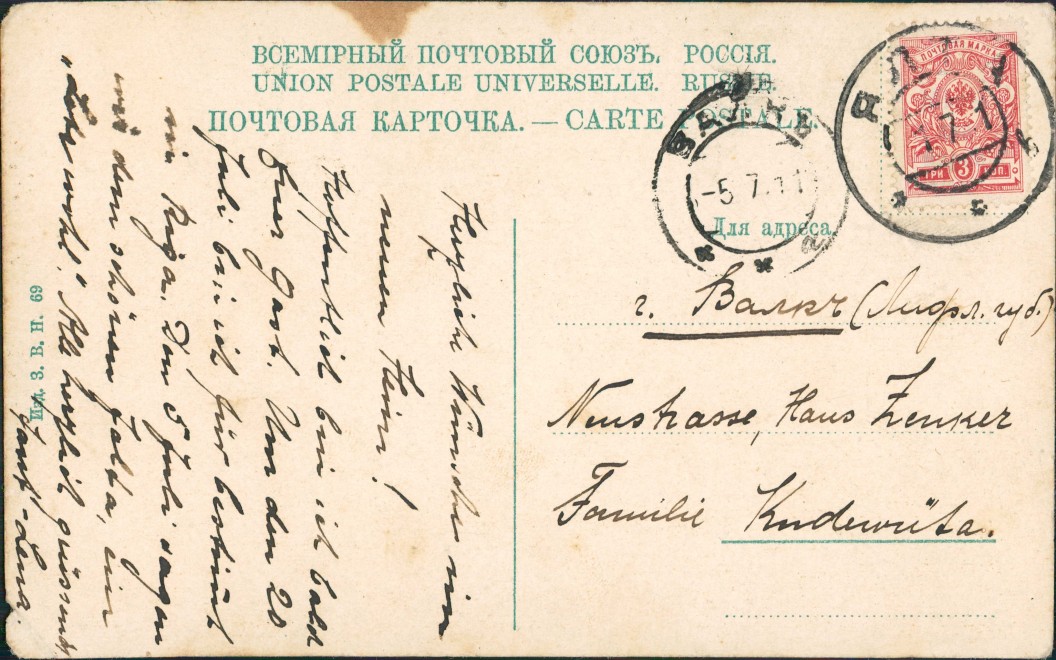 ВСЕМІРНЫЙ ПОЧТОВЫЙ СОЮЗЪ. РОССІЯ.
UNION POSTALE UNIVERSELLE. RUSSIE.
ПОЧТОВАЯ КАРТОЧКА. — CARTE POSTALE.
ПОЧТОВАЯ МАРКА
ТРИ 3 КОП.
-5.7.11
Для адреса.
г. Валкъ (Лифл. губ.)
Neustrasse, Haus Zenker
Familie
Herzlich Wünsche zum
neuen Heim!
Hoffentlich bin ich bald
Euer Gast. Um den 20
Juli bin ich für bestimt
in Riga. Den 5 Juli sagen
wir dem schönen Jalta, ein
„Lebewohl." Alle herzlich grüssend
Lena.
Изд. З. В. Н. 69